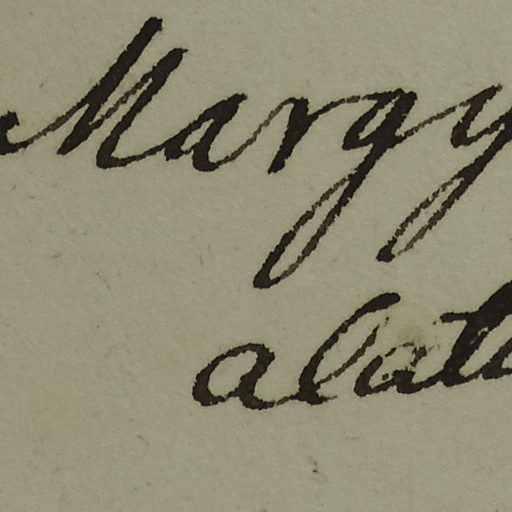 Margy
alat